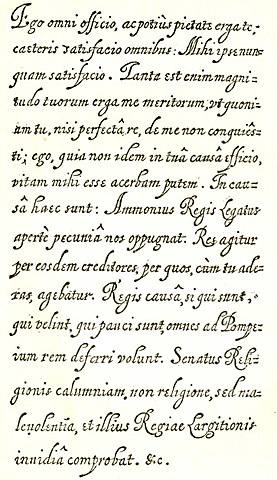 Ego omni officio, ac potius pietate erga te,
caeteris satisfacio omnibus: Mihi ipse nun-
quam satisfacio. Tanta est enim magni-
tudo tuorum erga me meritorum, vt quoni-
am tu, nisi perfectâ re, de me non conquiês-
ti; ego, quia non idem in tuâ causâ efficio,
vitam mihi esse acerbam putem. In cau-
sâ haec sunt: Ammonius Regis Legatus
apertè pecuniâ nos oppugnat. Res agitur
per eosdem creditores, per quos, cùm tu ade-
ras, agebatur. Regis causâ, si qui sunt,
qui velint, qui pauci sunt, omnes ad Pompe-
ium rem deferri volunt. Senatus Reli-
gionis calumniam, non religione, sed ma-
levolentia, et illius Regiae Largitionis
invidiâ comprobat. &c.